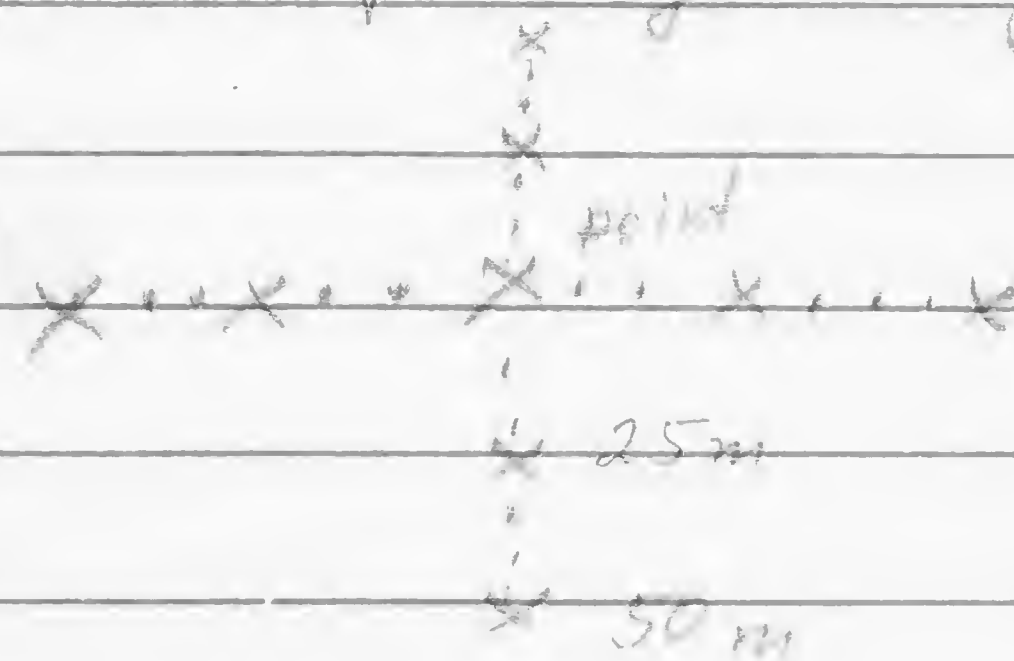 point
25 m
50 m